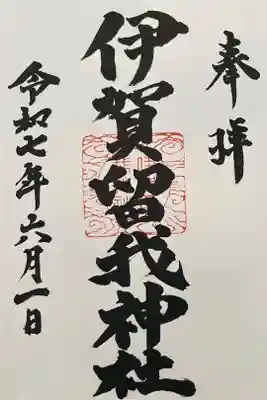 奉拝
伊賀留我神社
令和七年六月一日